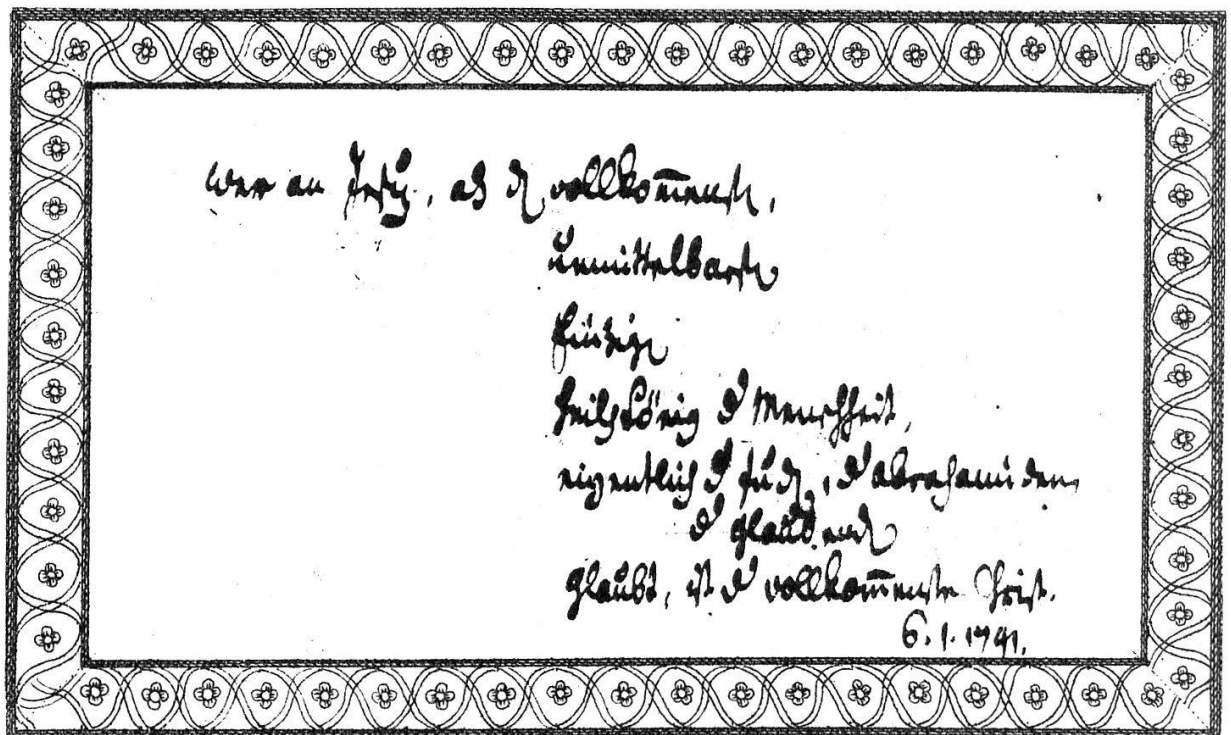 wer an Jesus, als dn vollkom̄ensten,
unmittelbarsten
Einzigen
Heilskönig d Menschheit,
eigentlich d Juden, d Abrahamiden,
d glaubenden
glaubt, ist d vollkom̄enste Christ.
6. 1. 1791.